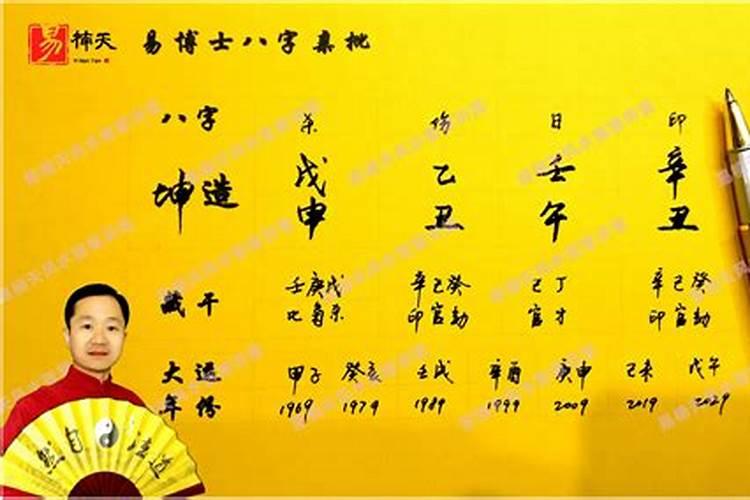 易 楠天
易博士八字来批
八字 杀 伤 日 印
坤造 戊 乙 壬 辛
申 丑 午 丑
藏干 壬庚戊 辛己癸 己丁 辛己癸
比枭杀 印官劫 官才 印官劫
大运 甲子 癸亥 壬戌 辛酉 庚申 己未 戊午
年份 1969 1979 1989 1999 2009 2019 2029
道法自然